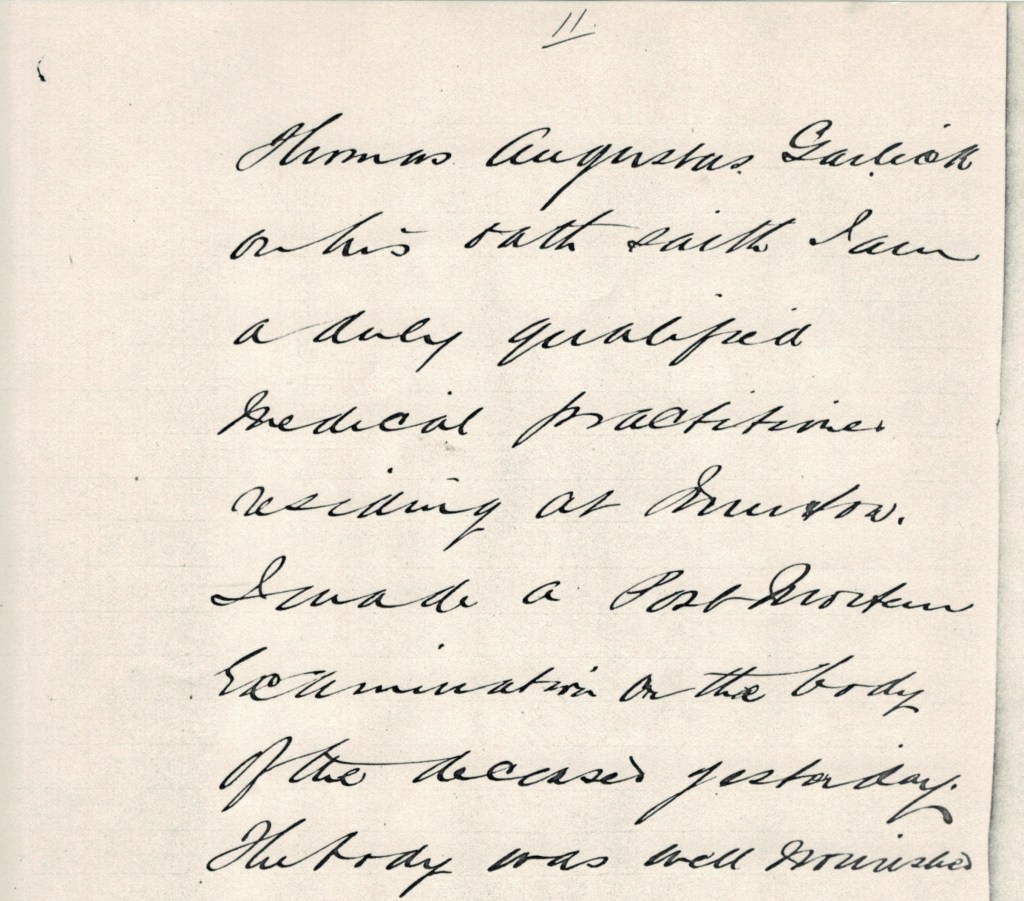 11.
Thomas Augustus Garlick
on his oath saith I am
a duly qualified
Medical practitioner
residing at
I made a Post Mortem
Examination on the body
of the deceased yesterday.
The body was well nourished